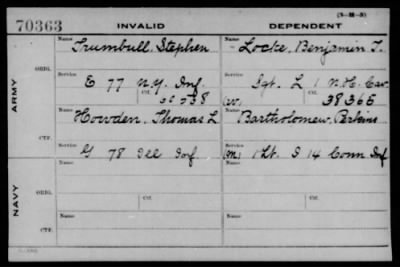 (3-18-5)
70363 INVALID DEPENDENT
Name Trumbull, Stephen Name Locke, Benjamin T.
ARMY
ORIG.
Service E 77 N.Y. Inf. Service Sgt. L 1 N.H. Cav
Ctf. Ctf. (W) 38366
Name Howden, Thomas L Name Bartholomew, Perkins
CTF.
Service G 78 Ill Inf Service (M) 1 Lt. D 14 Conn Inf
Ctf. Ctf.
Name Name
NAVY
ORIG.
Service Ctf. Service Ctf.
Name Name
CTF.